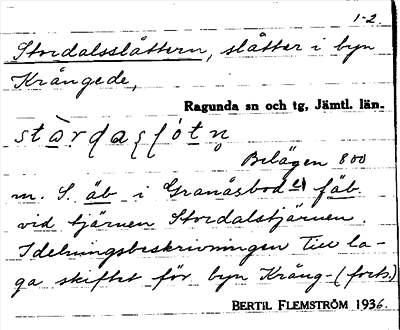 1-2.
Stordalsslåttern, slåtter i byn
Krångede,
Ragunda sn och tg, Jämtl. län.
Belägen 800
m. S. äb i Granåsbod fäb.
vid tjärnen Stordalstjärnen.
I delningsbeskrivningen till la-
ga skiftet för byn Kräng- (forts.)
BERTIL FLEMSTRÖM 1936.